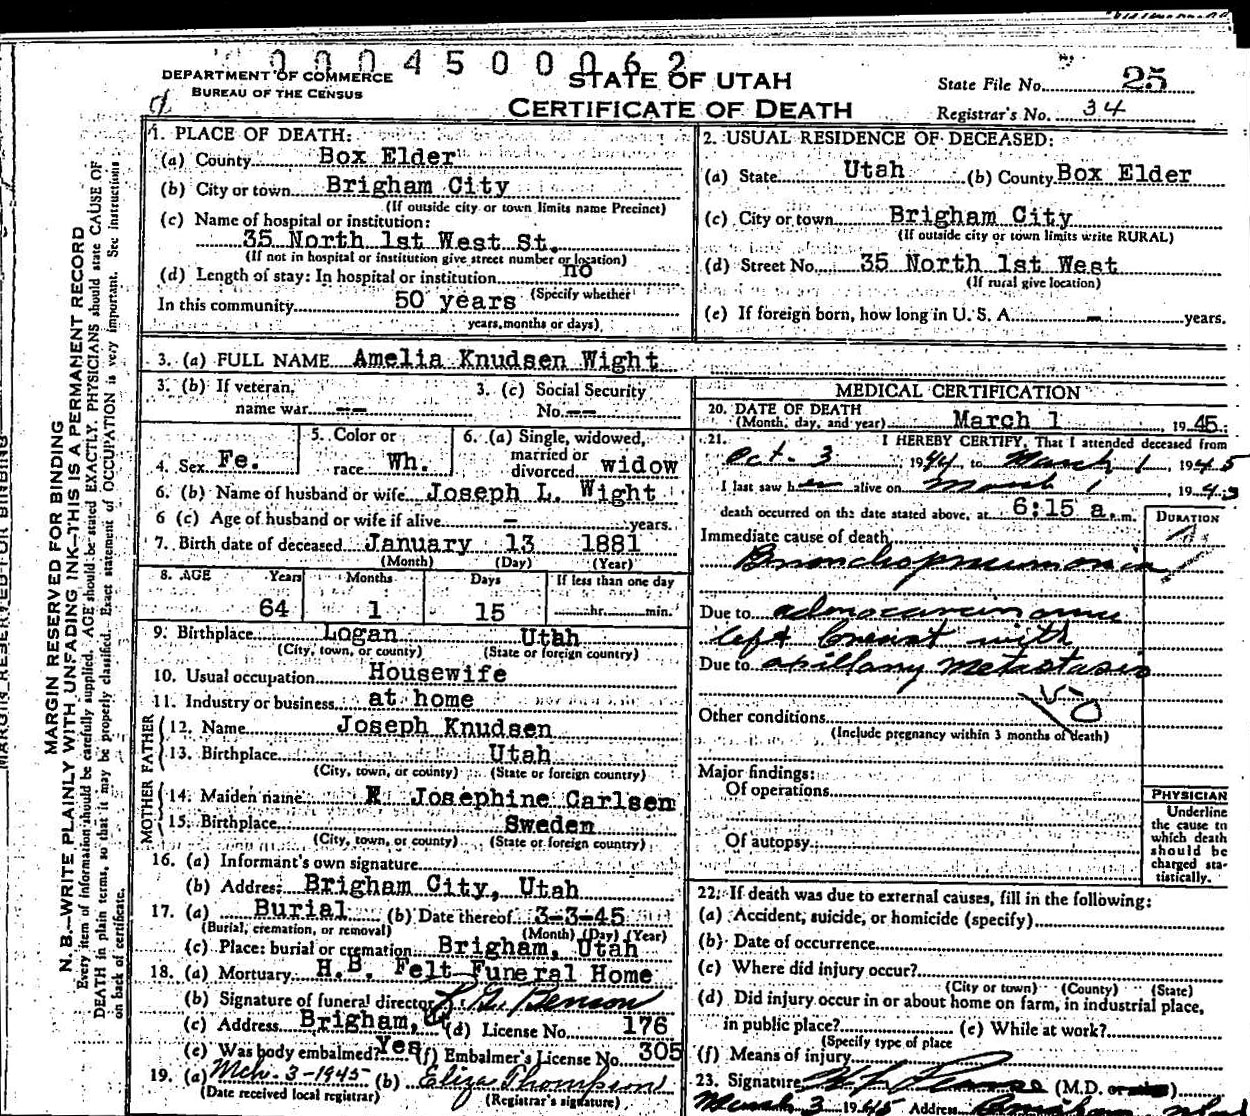 0004500062
DEPARTMENT OF COMMERCE
BUREAU OF THE CENSUS
STATE OF UTAH
CERTIFICATE OF DEATH
State File No. 25
Registrar's No. 34
MARGIN RESERVED FOR BINDING
N. B.—WRITE PLAINLY WITH UNFADING INK—THIS IS A PERMANENT RECORD
Every item of information should be carefully supplied. AGE should be stated EXACTLY. PHYSICIANS should state CAUSE OF
DEATH in plain terms, so that it may be properly classified. Exact statement of OCCUPATION is very important. See instructions
on back of certificate.
1. PLACE OF DEATH:
(a) County Box Elder
(b) City or town Brigham City
(If outside city or town limits name Precinct)
(c) Name of hospital or institution:
35 North 1st West St.
(If not in hospital or institution give street number or location)
(d) Length of stay: In hospital or institution no
(Specify whether
In this community 50 years
years, months or days)
2. USUAL RESIDENCE OF DECEASED:
(a) State Utah (b) County Box Elder
(c) City or town Brigham City
(If outside city or town limits write RURAL)
(d) Street No. 35 North 1st West
(If rural give location)
(e) If foreign born, how long in U. S. A. - years.
3. (a) FULL NAME Amelia Knudsen Wight
3. (b) If veteran,
name war --
3. (c) Social Security
No. --
4. Sex Fe.
5. Color or
race Wh.
6. (a) Single, widowed,
married or
divorced widow
6. (b) Name of husband or wife Joseph L. Wight
6 (c) Age of husband or wife if alive - years.
7. Birth date of deceased January 13 1881
(Month) (Day) (Year)
8. AGE Years Months Days If less than one day
64 1 15 hr. min.
9. Birthplace Logan Utah
(City, town, or county) (State or foreign country)
10. Usual occupation Housewife
11. Industry or business at home
FATHER
12. Name Joseph Knudsen
13. Birthplace Utah
(City, town, or county) (State or foreign country)
MOTHER
14. Maiden name Josephine Carlsen
15. Birthplace Sweden
(City, town, or county) (State or foreign country)
16. (a) Informant's own signature
(b) Address Brigham City, Utah
17. (a) Burial (b) Date thereof 3-3-45
(Burial, cremation, or removal) (Month) (Day) (Year)
(c) Place: burial or cremation Brigham, Utah
18. (a) Mortuary H.B. Felt Funeral Home
(b) Signature of funeral director Benson
(c) Address Brigham, Ut (d) License No. 176
(e) Was body embalmed? Yes (f) Embalmer's License No. 305
19. (a) Mch. 3-1945 (b) Eliza Thompson
(Date received local registrar) (Registrar's signature)
MEDICAL CERTIFICATION
20. DATE OF DEATH
(Month, day, and year) March 1, 1945.
21. I HEREBY CERTIFY, That I attended deceased from
Oct. 3, 1944, to March 1, 1945
I last saw her alive on March 1, 194
death occurred on the date stated above, at 6:15 a.m.
DURATION
Immediate cause of death
Bronchopneumonia
Due to adenocarcinoma
left breast with
Due to axillary metastasis
50
Other conditions
(Include pregnancy within 3 months of death)
Major findings:
Of operations
Of autopsy
PHYSICIAN
Underline
the cause to
which death
should be
charged sta-
tistically.
22. If death was due to external causes, fill in the following:
(a) Accident, suicide, or homicide (specify)
(b) Date of occurrence
(c) Where did injury occur?
(City or town) (County) (State)
(d) Did injury occur in or about home on farm, in industrial place,
in public place? (e) While at work?
(Specify type of place
(f) Means of injury
23. Signature (M.D.
March 3 1945 Address